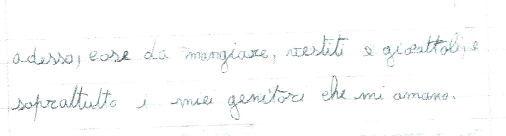 adesso, cose da mangiare, vestiti e giocattoli, e
soprattutto i miei genitori che mi amano.